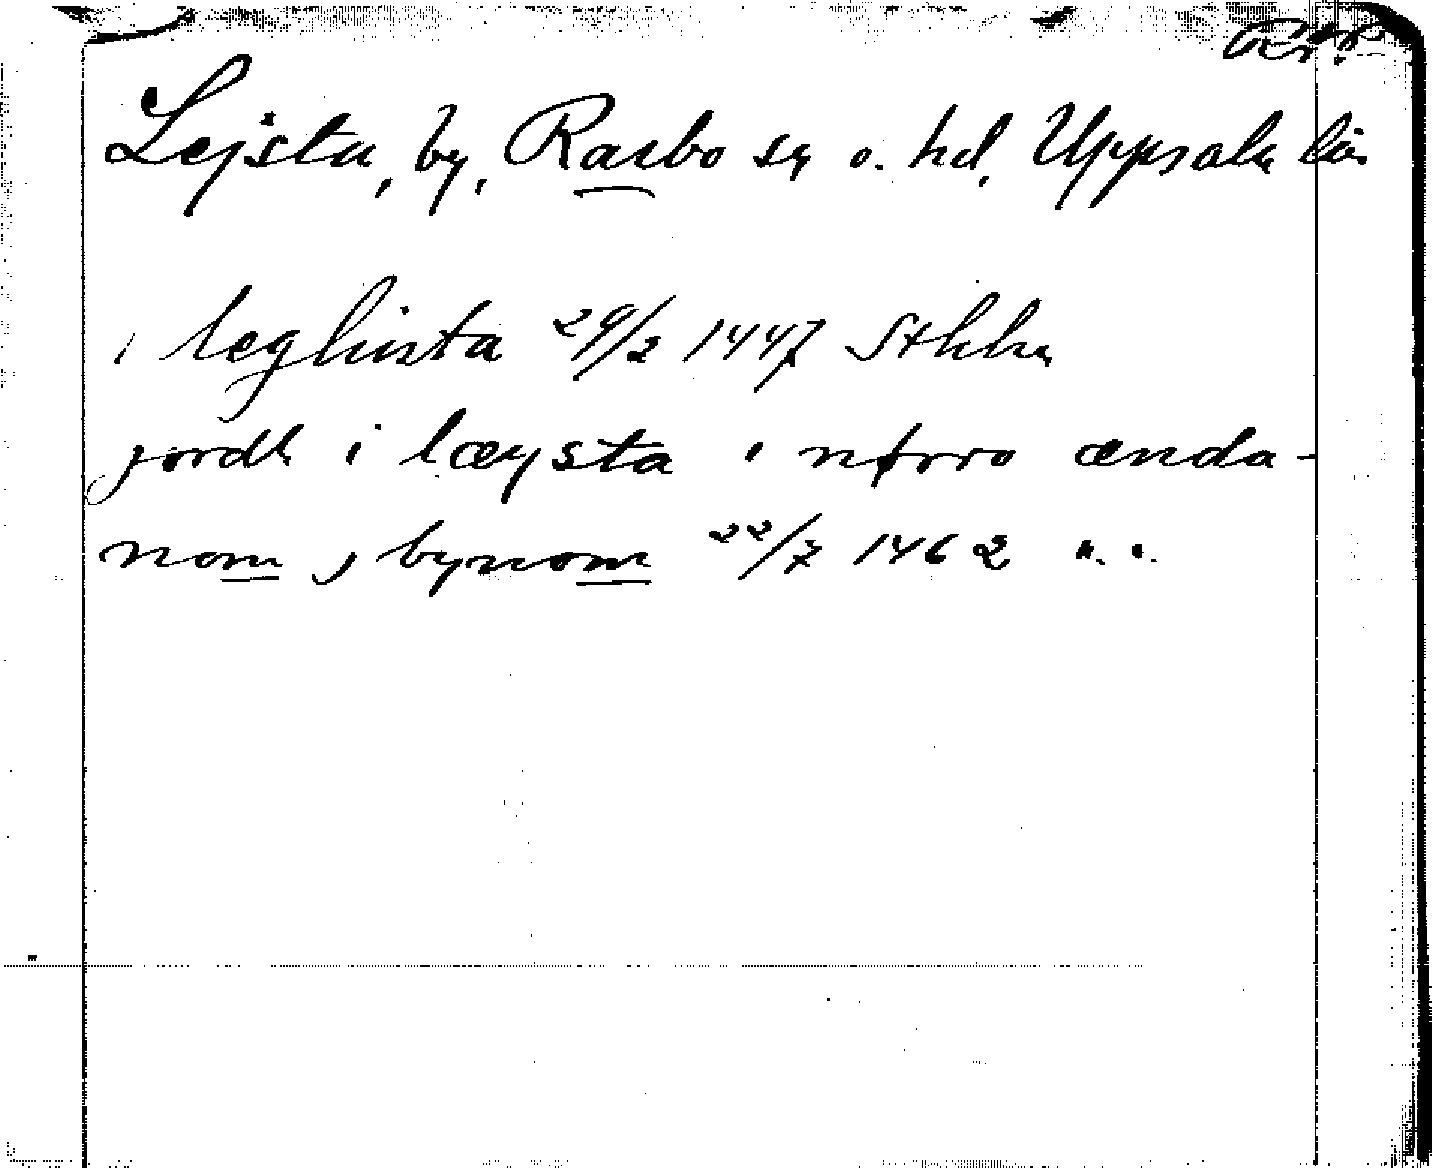 Lejsta, by, Rasbo sn o. hd, Uppsala län
i leghista 29/2 1447 Sthlm
jordh i læysta i nørro ænda-
nom j bynom 22/7 1462 ". ".